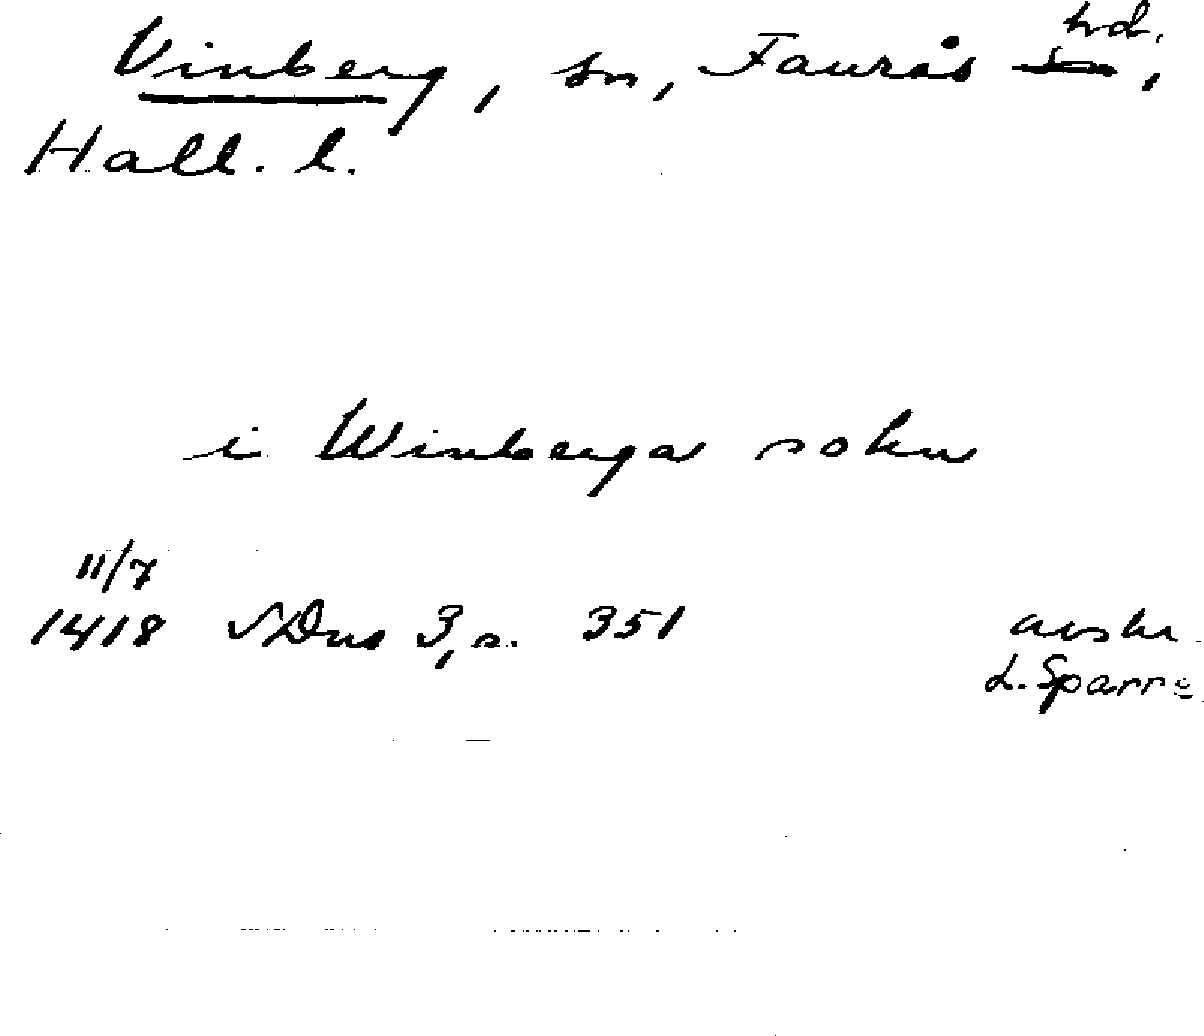 Vinberg, sn, Faurås hd.,
Hall. l.
i Winberga sokn
11/7
1418 SDns 3, s. 351 avskr.
L. Sparre